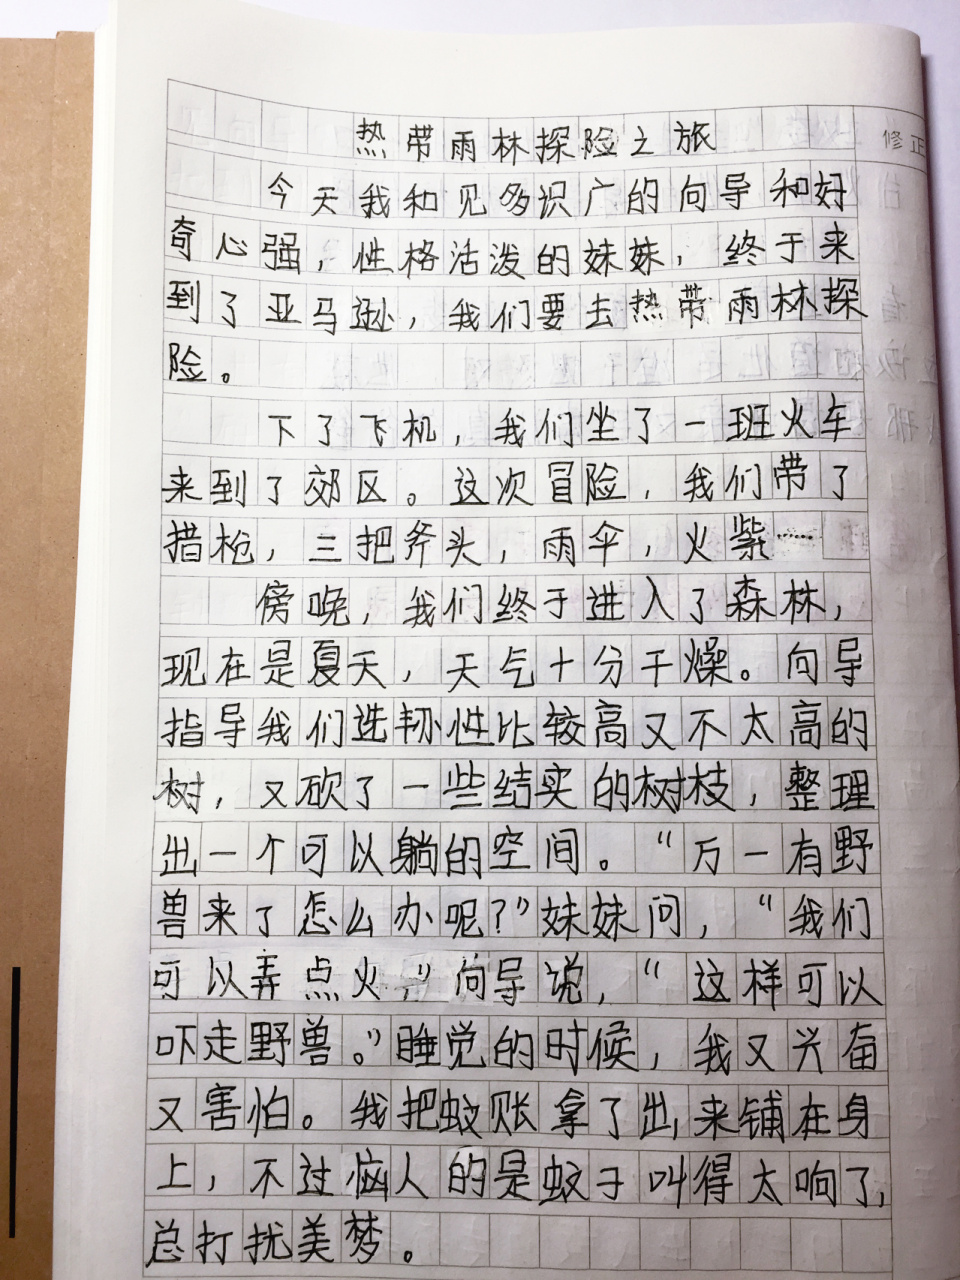 热带雨林探险之旅
修正
今天我和见多识广的向导和好
奇心强，性格活泼的妹妹，终于来
到了亚马逊，我们要去热带雨林探
险。
下了飞机，我们坐了一班火车
来到了郊区。这次冒险，我们带了
措枪，三把斧头，雨伞，火紫……
傍晚，我们终于进入了森林，
现在是夏天，天气十分干燥。向导
指导我们选韧性比较高又不太高的
树，又砍了一些结实的树枝，整理
出一个可以躺的空间。“万一有野
兽来了怎么办呢？”妹妹问，“我们
可以弄点火，”向导说，“这样可以
吓走野兽。”睡觉的时候，我又兴奋
又害怕。我把蚊账拿了出来铺在身
上，不过恼人的是蚊子叫得太响了，
总打扰美梦。